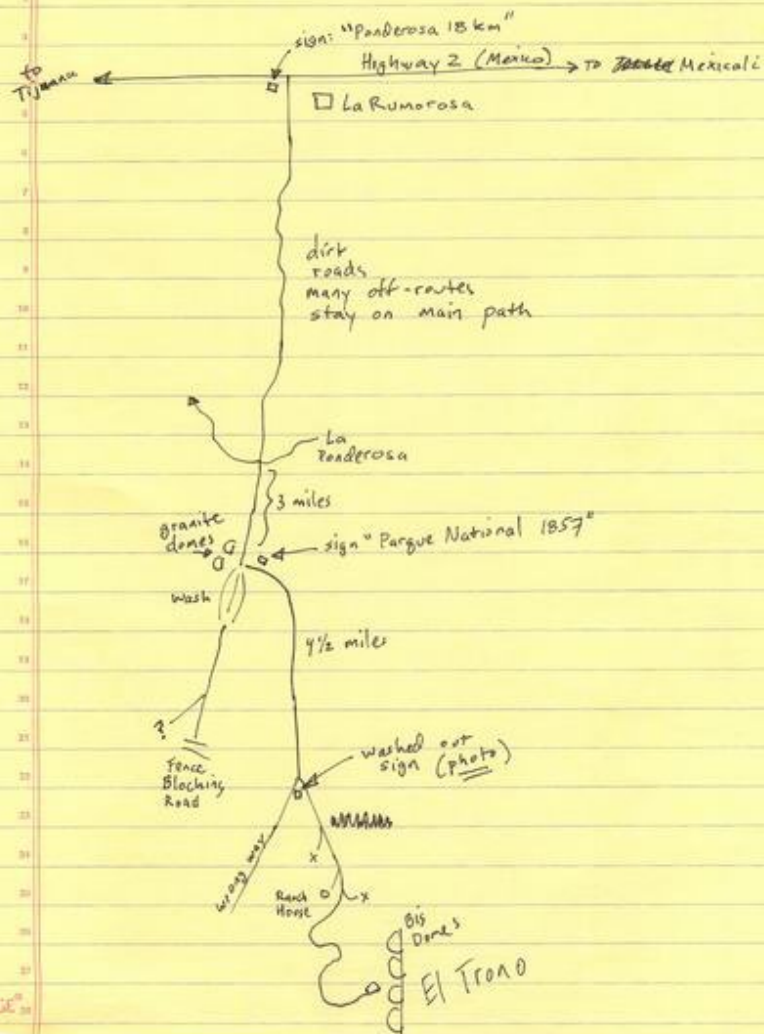 sign: "Ponderosa 18 km"
to
Tijuana
Highway 2 (Mexico)
TO Mexicali
La Rumorosa
dirt
roads
many off-routes
stay on main path
La
Ponderosa
3 miles
granite
domes
sign "Parque National 1857"
wash
4½ miles
?
Fence
Blocking
Road
washed out
sign (photo)
wrong way
x
Ranch
House
x
Big
Domes
El Trono